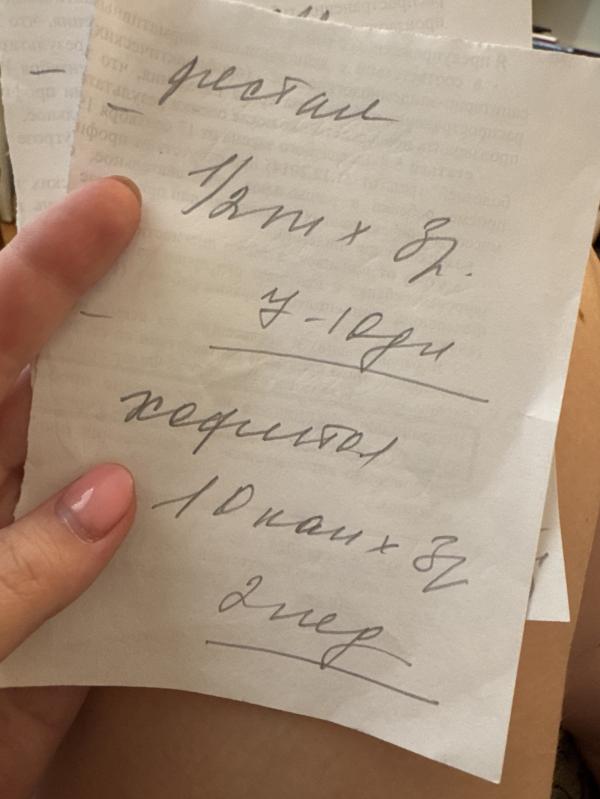 – фестал
1/2 т х 3р.
7-10 дн
хофитол
10 кап х 3р
2 нед